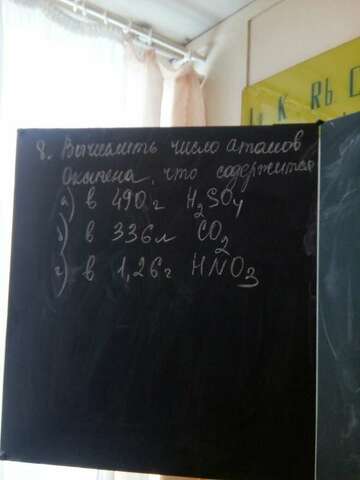 K Rb
8. Вычислить число атомов
Оксигена, что содержится
а) в 490 г H₂SO₄
б) в 336 л CO₂
г) в 1,26 г HNO₃